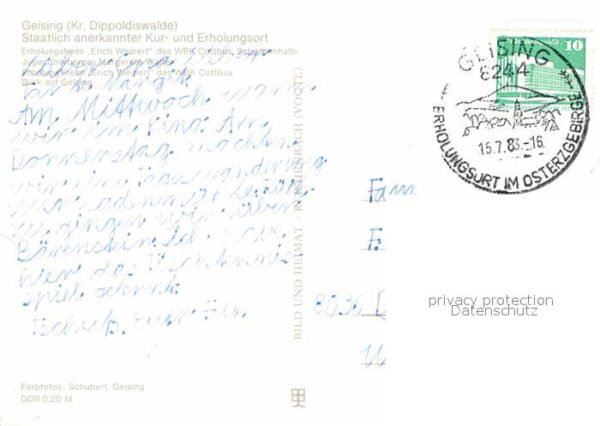 Geising (Kr. Dippoldiswalde)
Staatlich anerkannter Kur- und Erholungsort
Erholungsheim „Erich Weinert" des WBK Cottbus, Schwimmhalle
Jugendherberge „Margarete
Erholungsheim „Erich Weinert" des WBK Cottbus
Blick auf Geising
Am Mittwoch waren
wir im Kino. Am
Donnerstag machten
wir eine Tageswanderung
zu gingen wir über
Bärenstein. Ich habe
hier das Tischtennis
spiel gelernt.
Tschüß. Euer
Farbfotos: Schubert, Geising
DDR 0,20 M
BILD UND HEIMAT REICHENBACH (VOGTL)
10
GEISING
8244
15.7.83-16
ERHOLUNGSORT IM OSTERZGEBIRGE
Fam
F
8036 D
W
privacy protection
Datenschutz